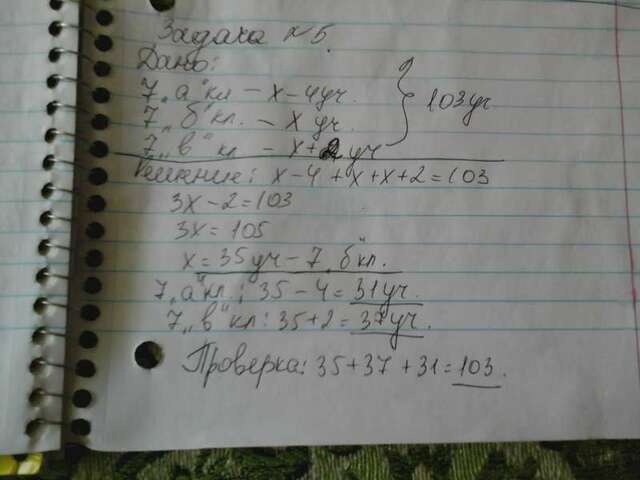 Задача №6
Дано:
7 „а" кл - х - 4 уч.
7 „б" кл. - х уч.
7 „в" кл - х + 2 уч
} 103 уч.
Решение: х - 4 + х + х + 2 = 103
3х - 2 = 103
3х = 105
х = 35 уч - 7 „б" кл.
7 „а" кл: 35 - 4 = 31 уч.
7 „в" кл: 35 + 2 = 37 уч.
Проверка: 35 + 37 + 31 = 103.